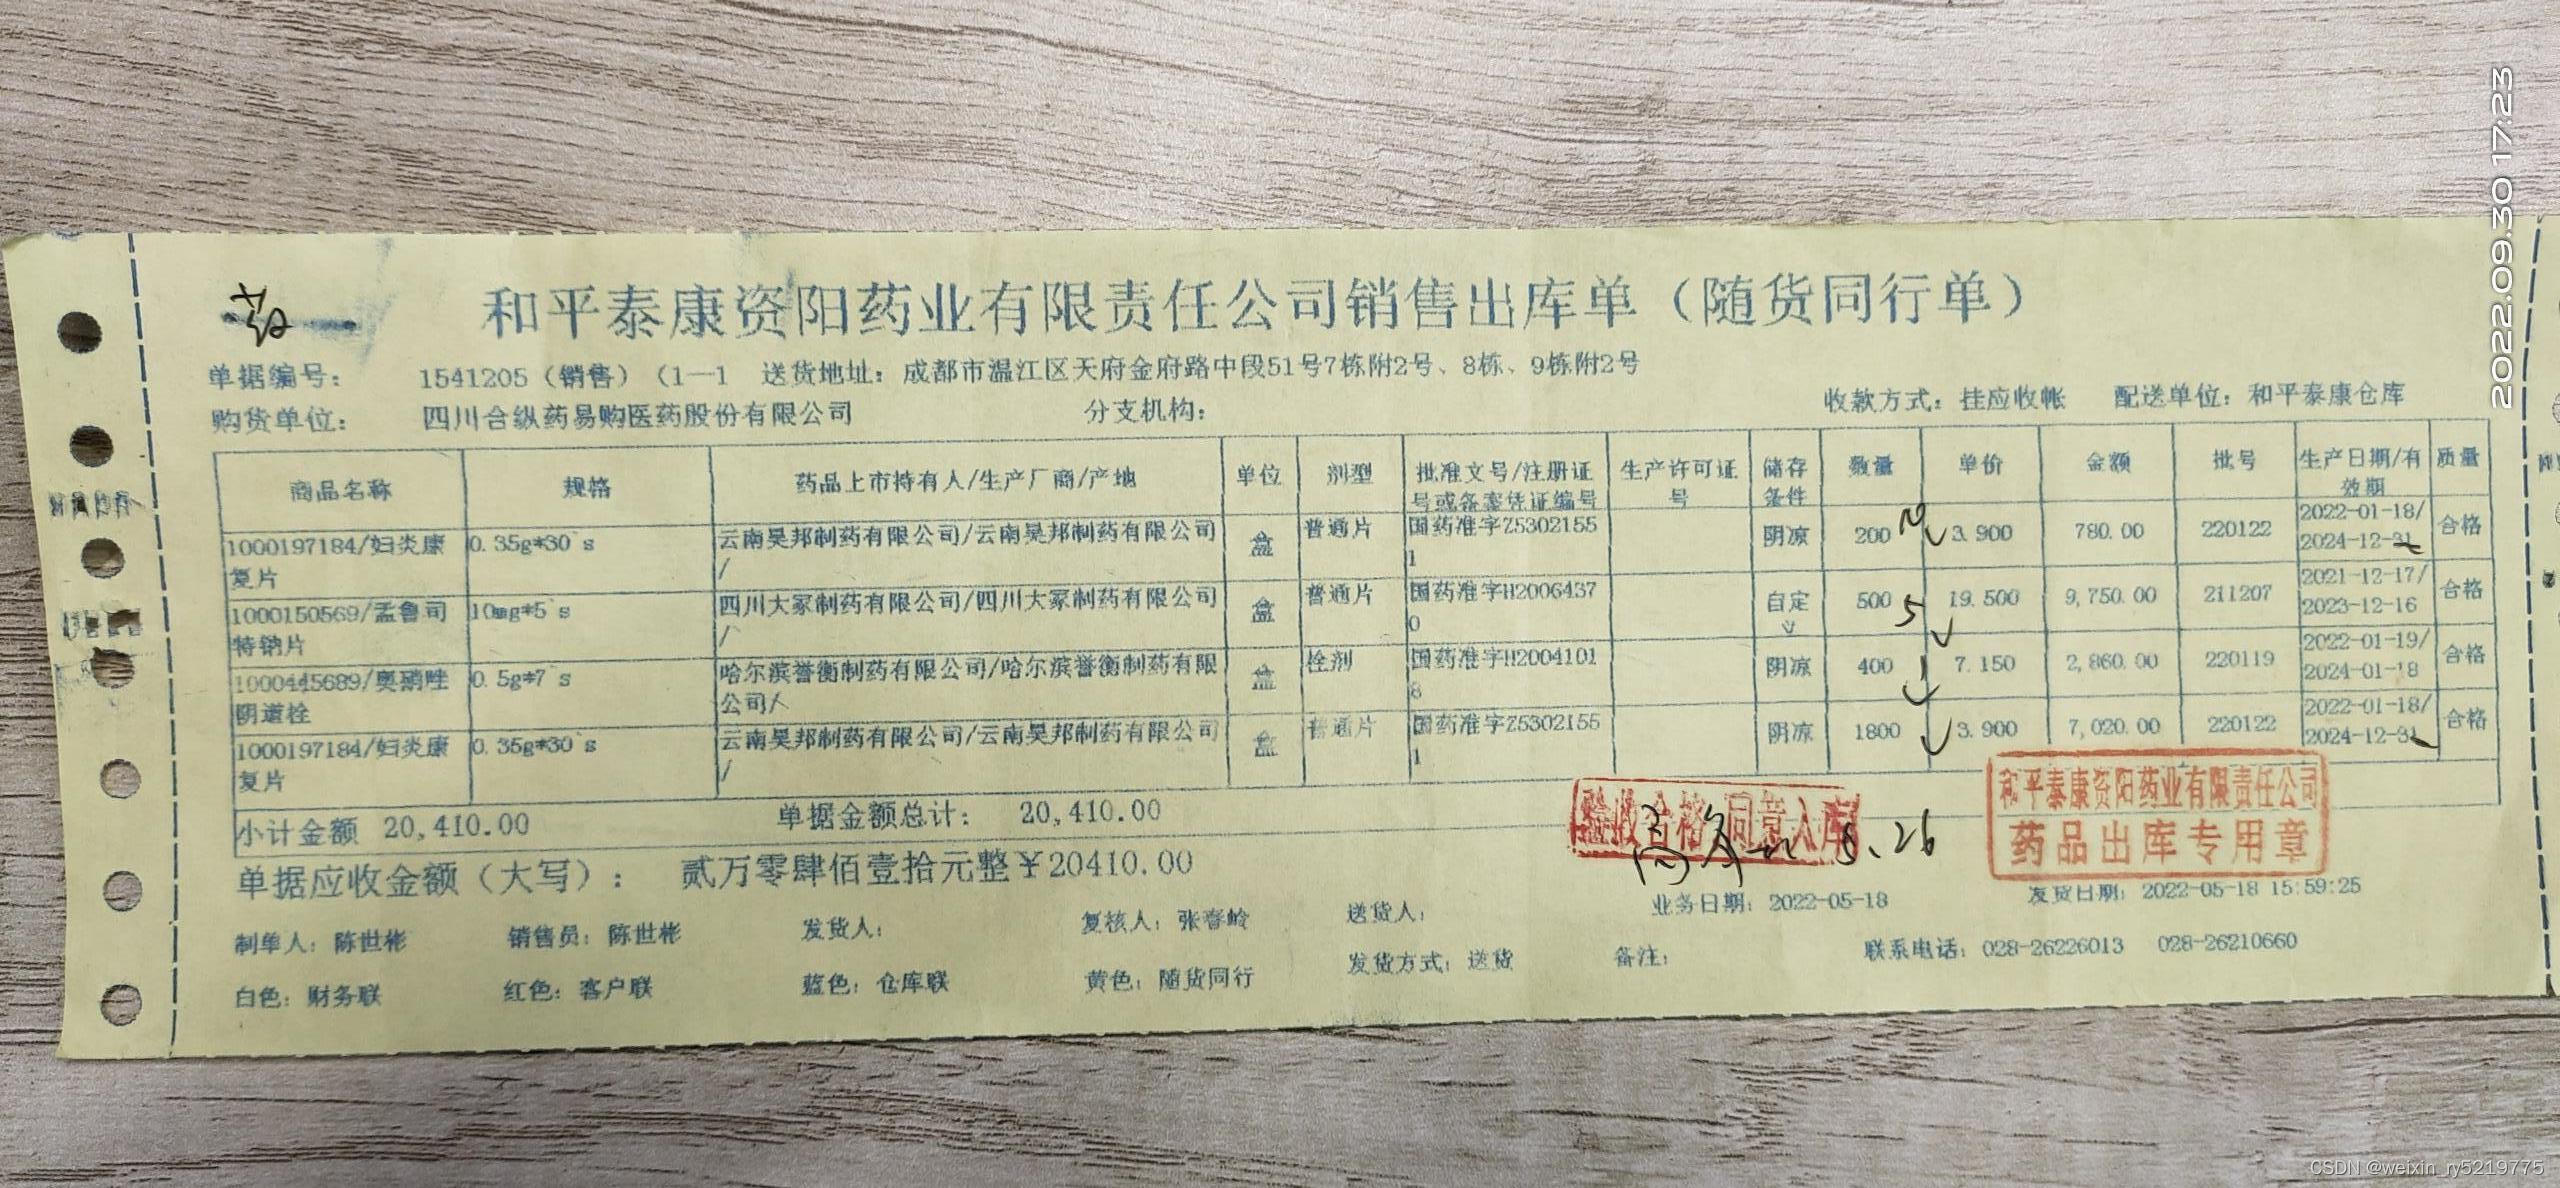 和平泰康资阳药业有限责任公司销售出库单（随货同行单）
单据编号： 1541205（销售）（1—1 送货地址：成都市温江区天府金府路中段51号7栋附2号、8栋、9栋附2号
购货单位： 四川合纵药易购医药股份有限公司 分支机构： 收款方式：挂应收帐 配送单位：和平泰康仓库
商品名称 规格 药品上市持有人/生产厂商/产地 单位 剂型 批准文号/注册证号或备案凭证编号 生产许可证号 储存条件 数量 单价 金额 批号 生产日期/有效期 质量
1000197184/妇炎康复片 0.35g*30`s 云南昊邦制药有限公司/云南昊邦制药有限公司/ 盒 普通片 国药准字Z53021551 阴凉 200 3.900 780.00 220122 2022-01-18/2024-12-31 合格
1000150569/孟鲁司特钠片 10mg*5`s 四川大冢制药有限公司/四川大冢制药有限公司/ 盒 普通片 国药准字H20064370 自定 500 5 19.500 9,750.00 211207 2021-12-17/2023-12-16 合格
1000445689/奥硝唑阴道栓 0.5g*7`s 哈尔滨誉衡制药有限公司/哈尔滨誉衡制药有限公司/ 盒 栓剂 国药准字H20041018 阴凉 400 7.150 2,860.00 220119 2022-01-19/2024-01-18 合格
1000197184/妇炎康复片 0.35g*30`s 云南昊邦制药有限公司/云南昊邦制药有限公司/ 盒 普通片 国药准字Z53021551 阴凉 1800 3.900 7,020.00 220122 2022-01-18/2024-12-31 合格
小计金额 20,410.00 单据金额总计： 20,410.00
验收合格 同意入库
和平泰康资阳药业有限责任公司
药品出库专用章
单据应收金额（大写）： 贰万零肆佰壹拾元整￥20410.00
业务日期：2022-05-18 发货日期：2022-05-18 15:59:25
制单人：陈世彬 销售员：陈世彬 发货人： 复核人：张春岭 送货人：
发货方式：送货 备注： 联系电话：028-26226013 028-26210660
白色：财务联 红色：客户联 蓝色：仓库联 黄色：随货同行
2022.09.30 17:23
CSDN @weixin_ry5219775